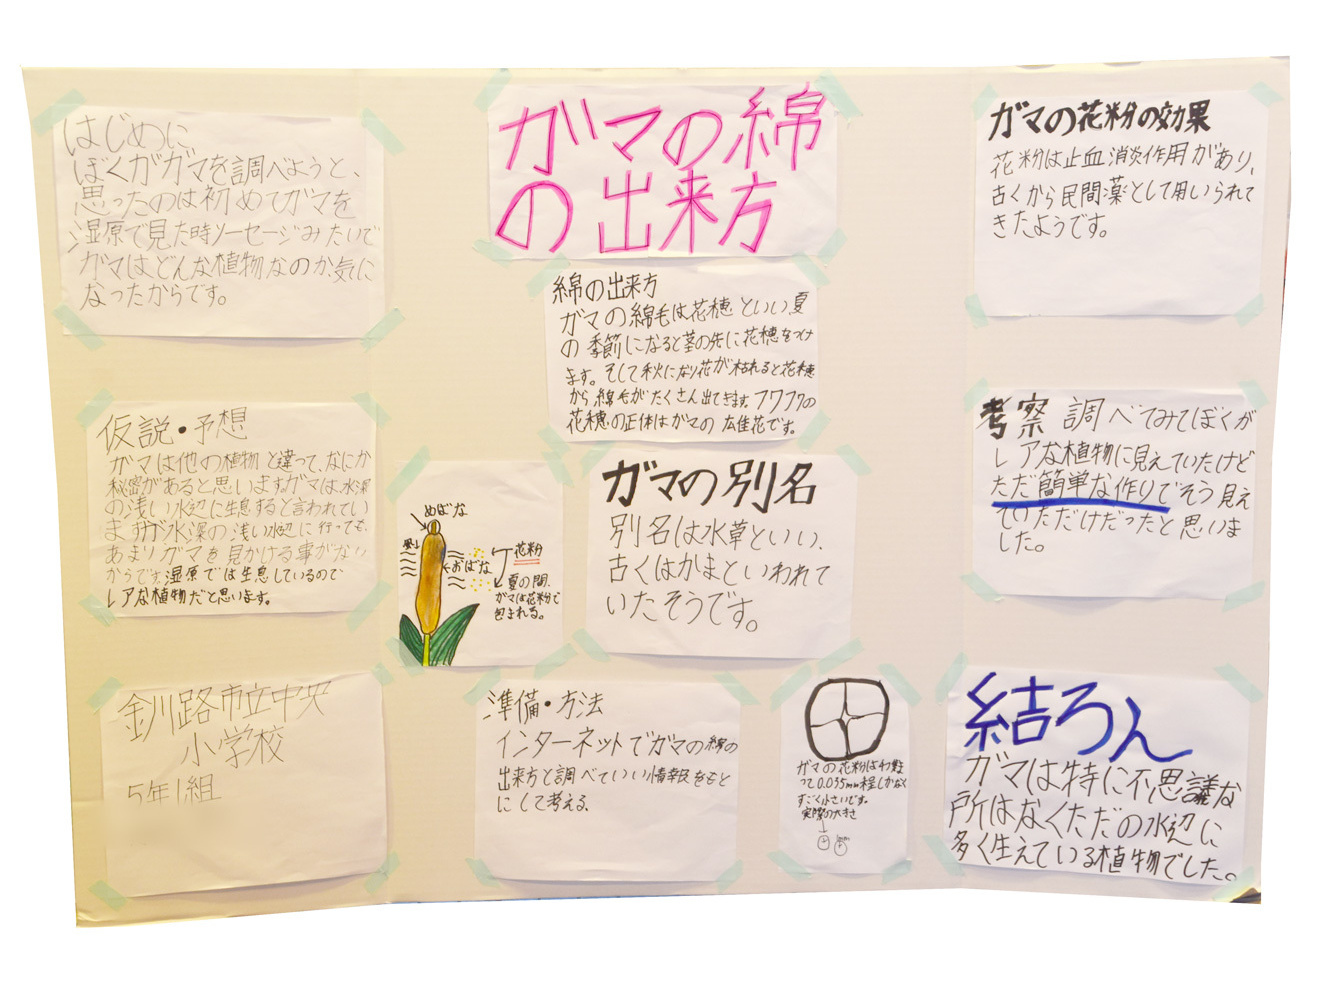 ガマの綿
の出来方
はじめに、
ぼくがガマを調べようと、
思ったのは初めてガマを
湿原で見た時ソーセージみたいで
ガマはどんな植物なのか気に
なったからです。
仮説・予想
ガマは他の植物と違って、なにか
秘密があると思いますガマは水深
の浅い水辺に生息すると言われてい
ますが水深の浅い水辺に行っても、
あまりガマを見かける事がない
からです。湿原では生息しているので
レアな植物だと思います。
釧路市立中央
小学校
5年1組
綿の出来方
ガマの綿毛は花穂といい、夏
の季節になると茎の先に花穂をつけ
ます。そして秋になり花が枯れると花穂
から綿毛がたくさん出てきます。フワフワの
花穂の正体はガマの雌花です。
めばな
おばな
花粉
夏の間、
ガマは花粉で
包まれる。
ガマの別名
別名は水草といい、
古くはかまといわれて
いたそうです。
準備・方法
インターネットでガマの綿の
出来方と調べていい情報をもと
にして考える。
ガマの花粉は4つ集ま
って0.035mm程しかなく
すごく小さいです。
実際の大きさ
ガマの花粉の効果
花粉は止血消炎作用があり、
古くから民間薬として用いられて
きたようです。
考察 調べてみてぼくが
レアな植物に見えていたけど
ただ簡単な作りでそう見え
ていただけだったと思いま
した。
結ろん
ガマは特に不思議な
所はなくただの水辺に
多く生えている植物でした。